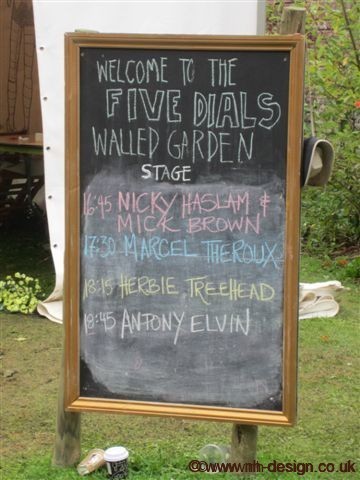 WELCOME TO THE
FIVE DIALS
WALLED GARDEN
STAGE
16:45 NICKY HASLAM &
MICK BROWN
17:30 MARCEL THEROUX
18:15 HERBIE TREEHEAD
18:45 ANTONY ELVIN
©www.nh-design.co.uk